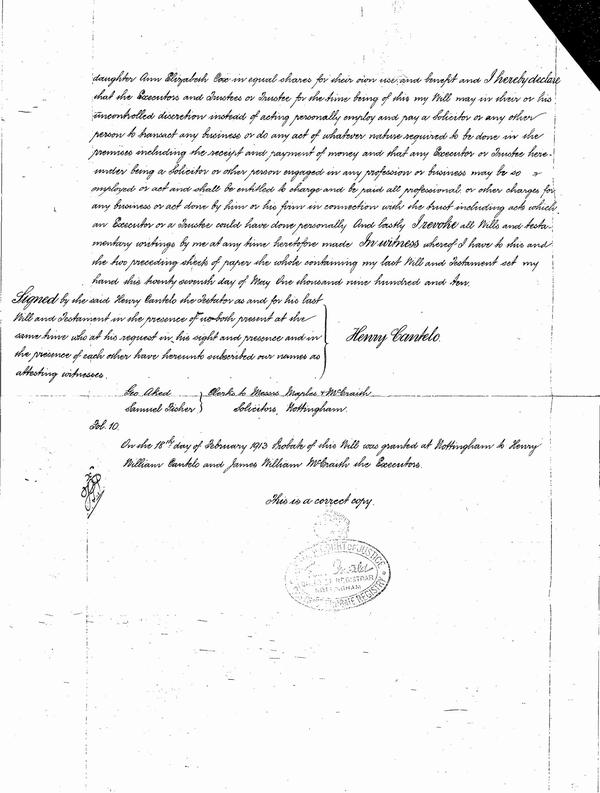 daughter Ann Elizabeth Cox in equal shares for their own use and benefit and I hereby declare
that the Executors and Trustees or Trustee for the time being of this my Will may in their or his
uncontrolled discretion instead of acting personally employ and pay a Solicitor or any other
person to transact any business or do any act of whatever nature required to be done in the
premises including the receipt and payment of money and that any Executor or Trustee here-
under being a Solicitor or other person engaged in any profession or business may be so
employed or act and shall be entitled to charge and be paid all professional or other charges for
any business or act done by him or his firm in connection with the trust including acts which
an Executor or a Trustee could have done personally And lastly I revoke all Wills and testa-
mentary writings by me at any time heretofore made In witness whereof I have to this and
the two preceding sheets of paper the whole containing my last Will and Testament set my
hand this twenty seventh day of May One thousand nine hundred and ten.
Signed by the said Henry Cantelo the Testator as and for his last
Will and Testament in the presence of us both present at the
same time who at his request in his sight and presence and in
the presence of each other have hereunto subscribed our names as
attesting witnesses.
Henry Cantelo.
Geo. Aked } Clerks to Messrs Maples & McCraith
Samuel Fisher } Solicitors, Nottingham.
Fol. 10.
On the 18th day of February 1913 Probate of this Will was granted at Nottingham to Henry
William Cantelo and James William McCraith the Executors.
This is a correct copy.
COURT OF JUSTICE
DISTRICT REGISTRAR
NOTTINGHAM
PROBATE REGISTRY